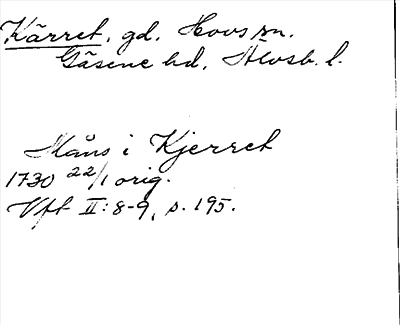 Kärret, gd, Hovs sn.
Gäsene hd, Älvsb. l.
Måns i Kjerret
1730 22/1 orig.
Vft II: 8-9, s. 195.